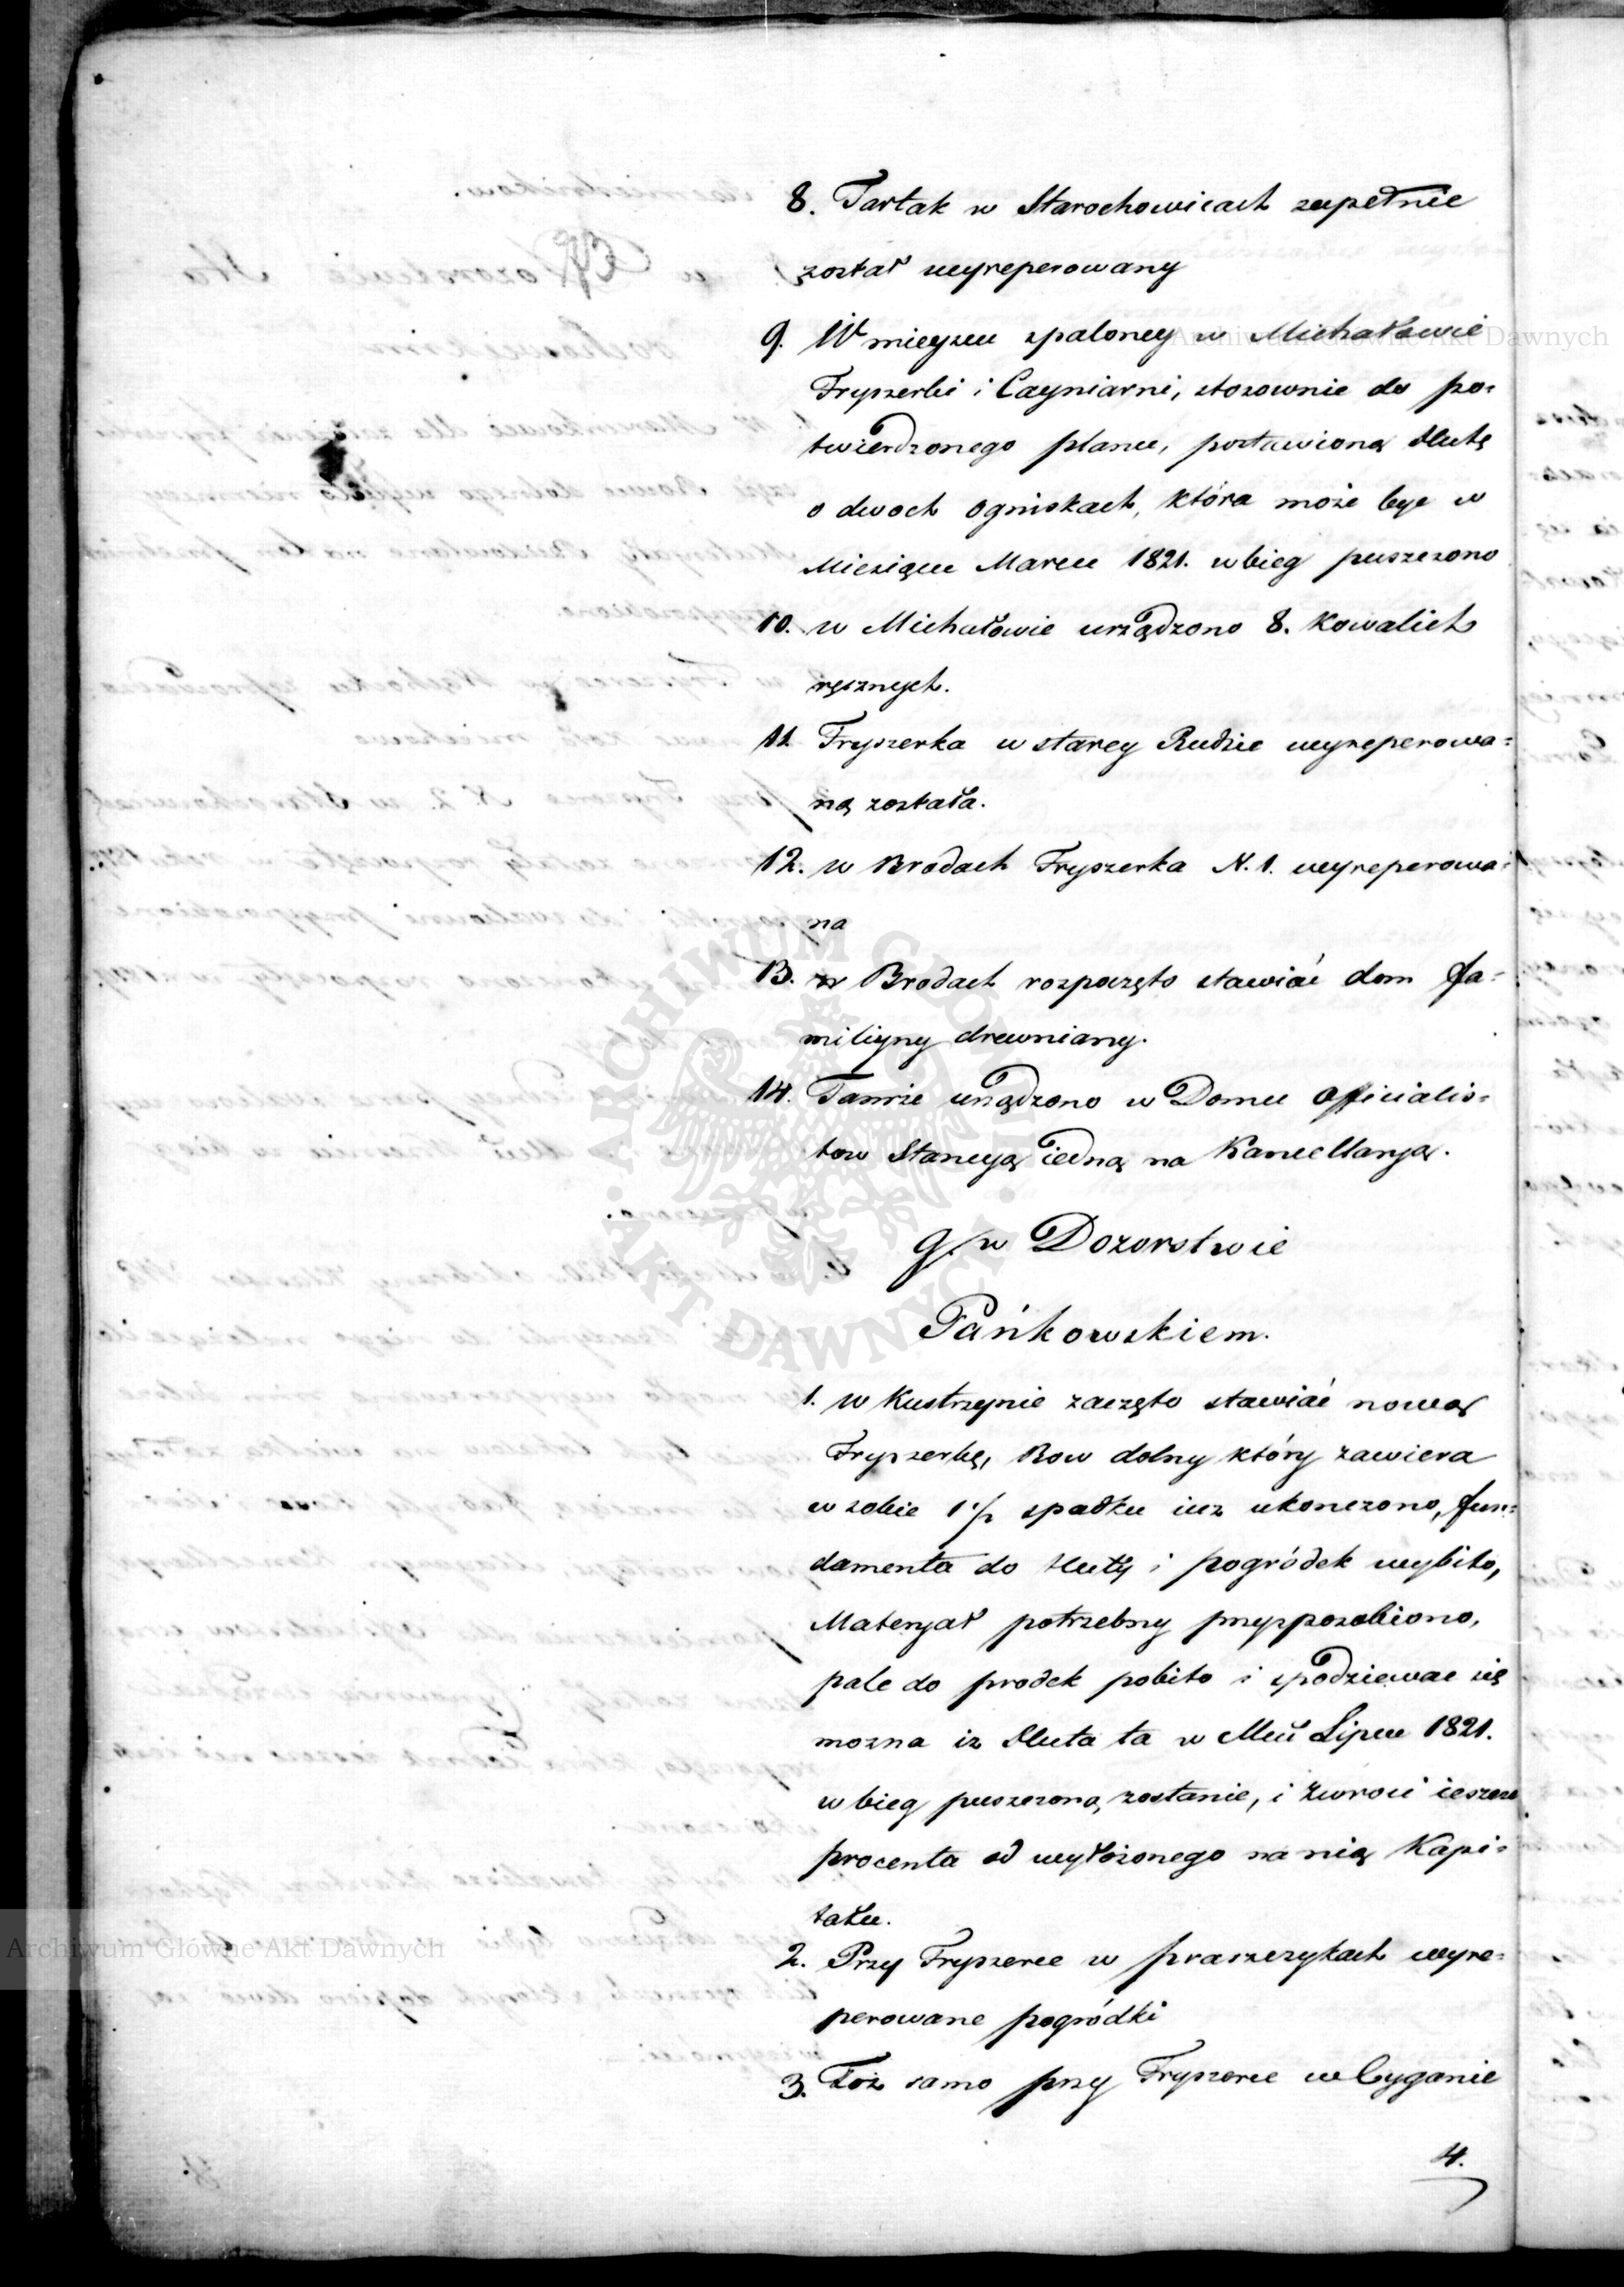 8. Tartak w Starochowicach zupełnie
został wyreperowany
9. W mieyscu spaloney w Michałowie
Fryszerki i Cayniarni, stosownie do po=
twierdzonego planu, postawioną Hutę
o dwoch ogniskach, która może byc w
Miesiącu Marcu 1821. w bieg puszczono
10. w Michałowie urządzono 8. Kowalich
ręcznych.
11 Fryszerka w starey Rudzie wyreperowa=
ną została.
12. w Brodach Fryszerka N. 1. wyreperowa=
na
13. w Brodach rozpoczęto stawiać dom fa=
miliyny drewniany.
14. Tamże urządzono w Domu Officialis=
tow Stancyą iedną na Kancellaryą.
g. w Dozorstwie
Pańkowskiem.
1. w Kustrzynie zaczęto stawiać nową
Fryszerkę, Row dolny który zawiera
w sobie spadku iuz ukonczono, fun=
damenta do Huty i pogródek wybito,
Materyał potrzebny przysposobiono,
pale do prodek pobito i spodziewac się
mozna iz Huta ta w Mcu Lipcu 1821.
w bieg puszczoną zostanie, i zwroci ieszcze
procenta od wyłożonego na nią Kapi=
tału.
2. Przy Fryszerce w praszczykach wyre=
perowane pogródki
3. Toż samo przy Fryszerce w Cyganie
4.
Archiwum Główne Akt Dawnych
Archiwum Główne Akt Dawnych
ARCHIWUM GŁÓWNE AKT DAWNYCH